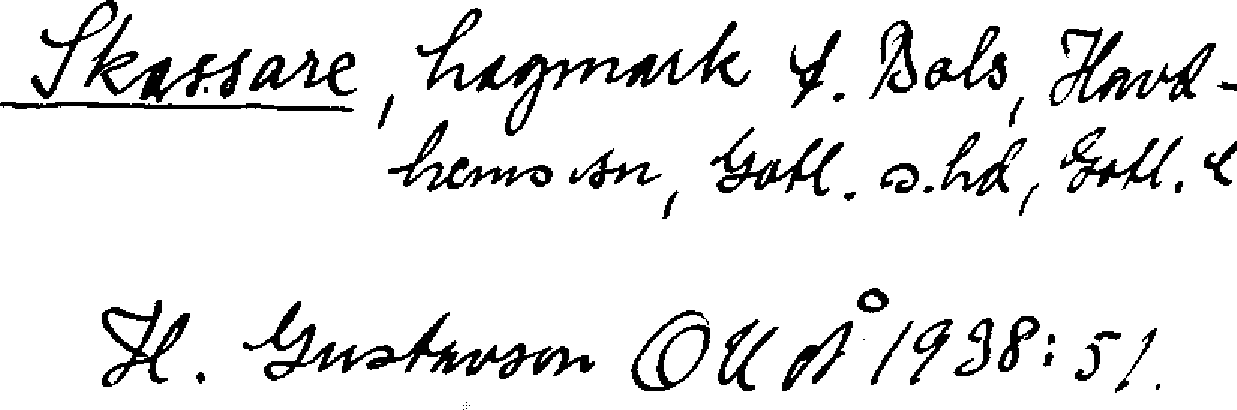 Skassare, hagmark t. Bols, Havd-
hems sn, Gotl. s. hd, Gotl. l
H. Gustavson OUÅ 1938:51.